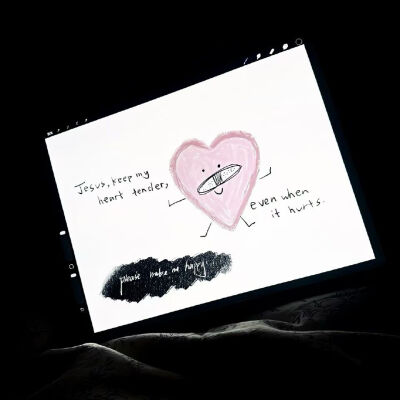 Jesus, keep my
heart tender,
even when
it hurts.
please make me happy